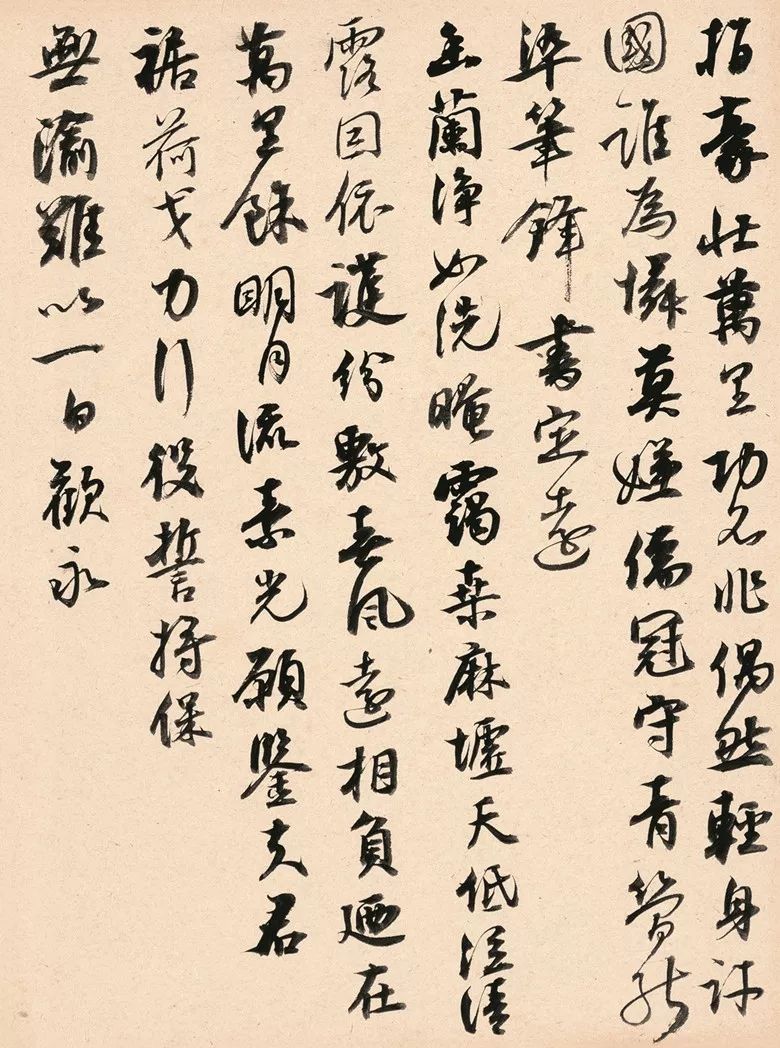 指豪壯萬里功名非偶然輕身許
國誰為憐莫嫌儒冠守青能
淬筆鋒書定遠
幽蘭淨如洗晻靄桑麻墟天低浥清
露因依護紛敷春風遠相負迺在
萬里餘明月流素光願鑒夫君
裾荷戈力行役誓將保
無渝難以一日歡永